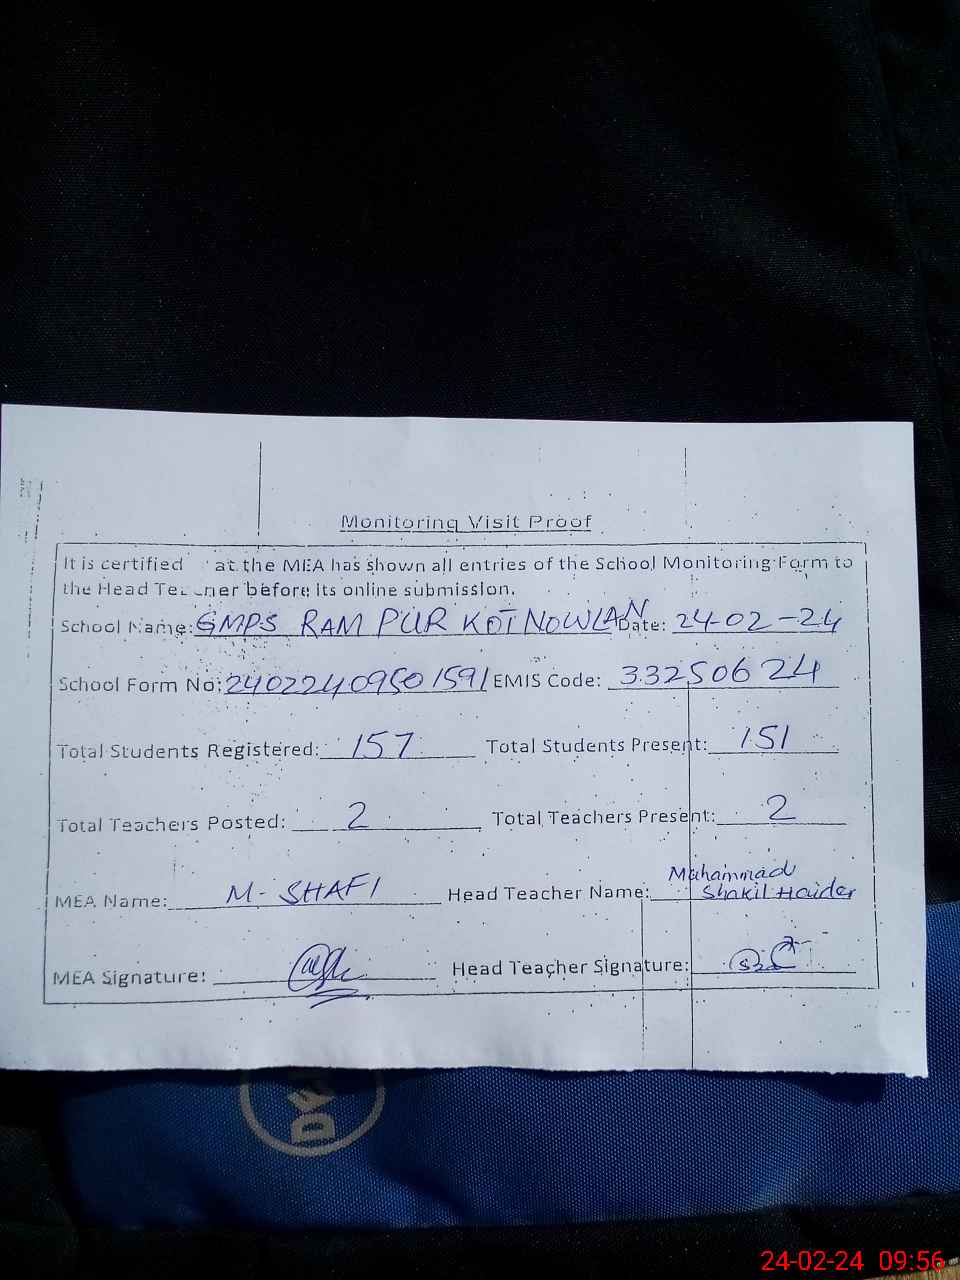 Monitoring Visit Proof
It is certified at the MEA has shown all entries of the School Monitoring Form to
the Head Teacher before its online submission.
School Name: GMPS RAM PUR KOT NOWLAN Date: 24-02-24
School Form No: 24022409501591 EMIS Code: 33250624
Total Students Registered: 157 Total Students Present: 151
Total Teachers Posted: 2 Total Teachers Present: 2
MEA Name: M-SHAFI Head Teacher Name: Muhammad Shakil Haider
MEA Signature: Head Teacher Signature:
24-02-24 09:56